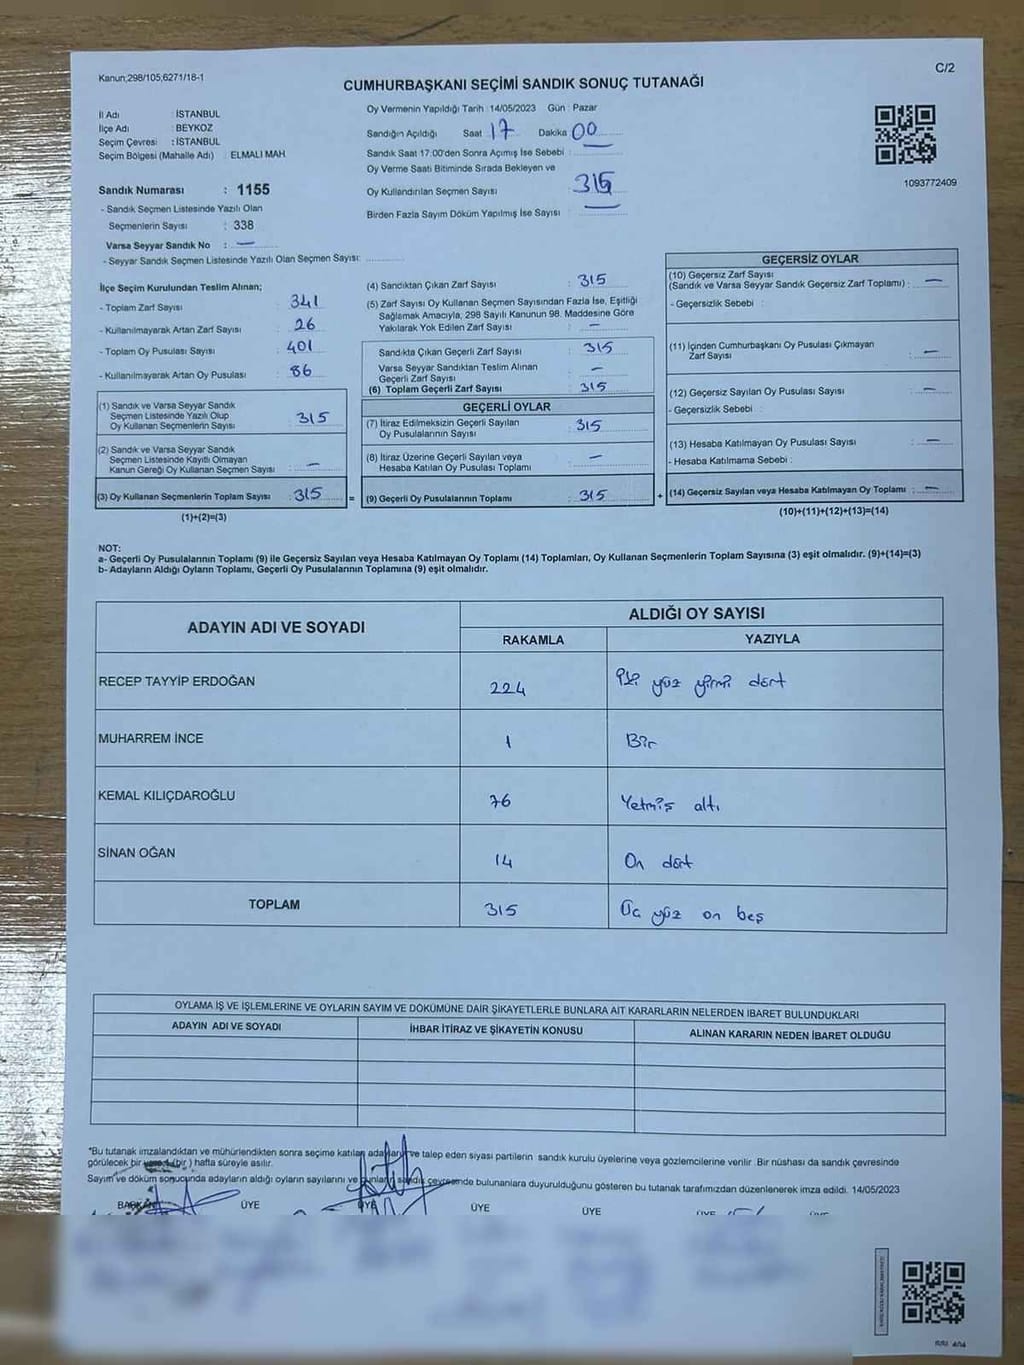 Kanun;298/105,6271/18-1
C/2
CUMHURBAŞKANI SEÇİMİ SANDIK SONUÇ TUTANAĞI
İl Adı : İSTANBUL
İlçe Adı : BEYKOZ
Seçim Çevresi : İSTANBUL
Seçim Bölgesi (Mahalle Adı) : ELMALI MAH
Sandık Numarası : 1155
- Sandık Seçmen Listesinde Yazılı Olan
Seçmenlerin Sayısı : 338
Varsa Seyyar Sandık No : —
- Seyyar Sandık Seçmen Listesinde Yazılı Olan Seçmen Sayısı:
Oy Vermenin Yapıldığı Tarih 14/05/2023 Gün : Pazar
Sandığın Açıldığı Saat 17 Dakika 00
Sandık Saat 17:00'den Sonra Açımış İse Sebebi : —
Oy Verme Saati Bitiminde Sırada Bekleyen ve
Oy Kullandırılan Seçmen Sayısı 315
Birden Fazla Sayım Döküm Yapılmış İse Sayısı : —
1093772409
İlçe Seçim Kurulundan Teslim Alınan;
- Toplam Zarf Sayısı : 341
- Kullanılmayarak Artan Zarf Sayısı : 26
- Toplam Oy Pusulası Sayısı : 401
- Kullanılmayarak Artan Oy Pusulası : 86
(1) Sandık ve Varsa Seyyar Sandık
Seçmen Listesinde Yazılı Olup
Oy Kullanan Seçmenlerin Sayısı : 315
(2) Sandık ve Varsa Seyyar Sandık
Seçmen Listesinde Kayıtlı Olmayan
Kanun Gereği Oy Kullanan Seçmen Sayısı : —
(3) Oy Kullanan Seçmenlerin Toplam Sayısı : 315
(1)+(2)=(3)
=
(4) Sandıktan Çıkan Zarf Sayısı : 315
(5) Zarf Sayısı Oy Kullanan Seçmen Sayısından Fazla İse, Eşitliği
Sağlamak Amacıyla, 298 Sayılı Kanunun 98. Maddesine Göre
Yakılarak Yok Edilen Zarf Sayısı : —
Sandıkta Çıkan Geçerli Zarf Sayısı : 315
Varsa Seyyar Sandıktan Teslim Alınan
Geçerli Zarf Sayısı : —
(6) Toplam Geçerli Zarf Sayısı : 315
GEÇERLİ OYLAR
(7) İtiraz Edilmeksizin Geçerli Sayılan
Oy Pusulalarının Sayısı : 315
(8) İtiraz Üzerine Geçerli Sayılan veya
Hesaba Katılan Oy Pusulası Toplamı : —
(9) Geçerli Oy Pusulalarının Toplamı : 315
+
GEÇERSİZ OYLAR
(10) Geçersiz Zarf Sayısı
(Sandık ve Varsa Seyyar Sandık Geçersiz Zarf Toplamı) : —
- Geçersizlik Sebebi :
(11) İçinden Cumhurbaşkanı Oy Pusulası Çıkmayan
Zarf Sayısı : —
(12) Geçersiz Sayılan Oy Pusulası Sayısı : —
- Geçersizlik Sebebi :
(13) Hesaba Katılmayan Oy Pusulası Sayısı : —
- Hesaba Katılmama Sebebi :
(14) Geçersiz Sayılan veya Hesaba Katılmayan Oy Toplamı : —
(10)+(11)+(12)+(13)=(14)
NOT:
a- Geçerli Oy Pusulalarının Toplamı (9) ile Geçersiz Sayılan veya Hesaba Katılmayan Oy Toplamı (14) Toplamları, Oy Kullanan Seçmenlerin Toplam Sayısına (3) eşit olmalıdır. (9)+(14)=(3)
b- Adayların Aldığı Oyların Toplamı, Geçerli Oy Pusulalarının Toplamına (9) eşit olmalıdır.
ADAYIN ADI VE SOYADI
ALDIĞI OY SAYISI
RAKAMLA YAZIYLA
RECEP TAYYİP ERDOĞAN 224 iki yüz yirmi dört
MUHARREM İNCE 1 Bir
KEMAL KILIÇDAROĞLU 76 Yetmiş altı
SİNAN OĞAN 14 On dört
TOPLAM 315 Üç yüz on beş
OYLAMA İŞ VE İŞLEMLERİNE VE OYLARIN SAYIM VE DÖKÜMÜNE DAİR ŞİKAYETLERLE BUNLARA AİT KARARLARIN NELERDEN İBARET BULUNDUKLARI
ADAYIN ADI VE SOYADI İHBAR İTİRAZ VE ŞİKAYETİN KONUSU ALINAN KARARIN NEDEN İBARET OLDUĞU
*Bu tutanak imzalandıktan ve mühürlendikten sonra seçime katılan adaylara ve talep eden siyasi partilerin sandık kurulu üyelerine veya gözlemcilerine verilir. Bir nüshası da sandık çevresinde
görülecek bir yere 1 (bir) hafta süreyle asılır.
Sayım ve döküm sonucunda adayların aldığı oyların sayılarını ve bunların sandık çevresinde bulunanlara duyurulduğunu gösteren bu tutanak tarafımızdan düzenlenerek imza edildi. 14/05/2023
BAŞKAN ÜYE ÜYE ÜYE ÜYE